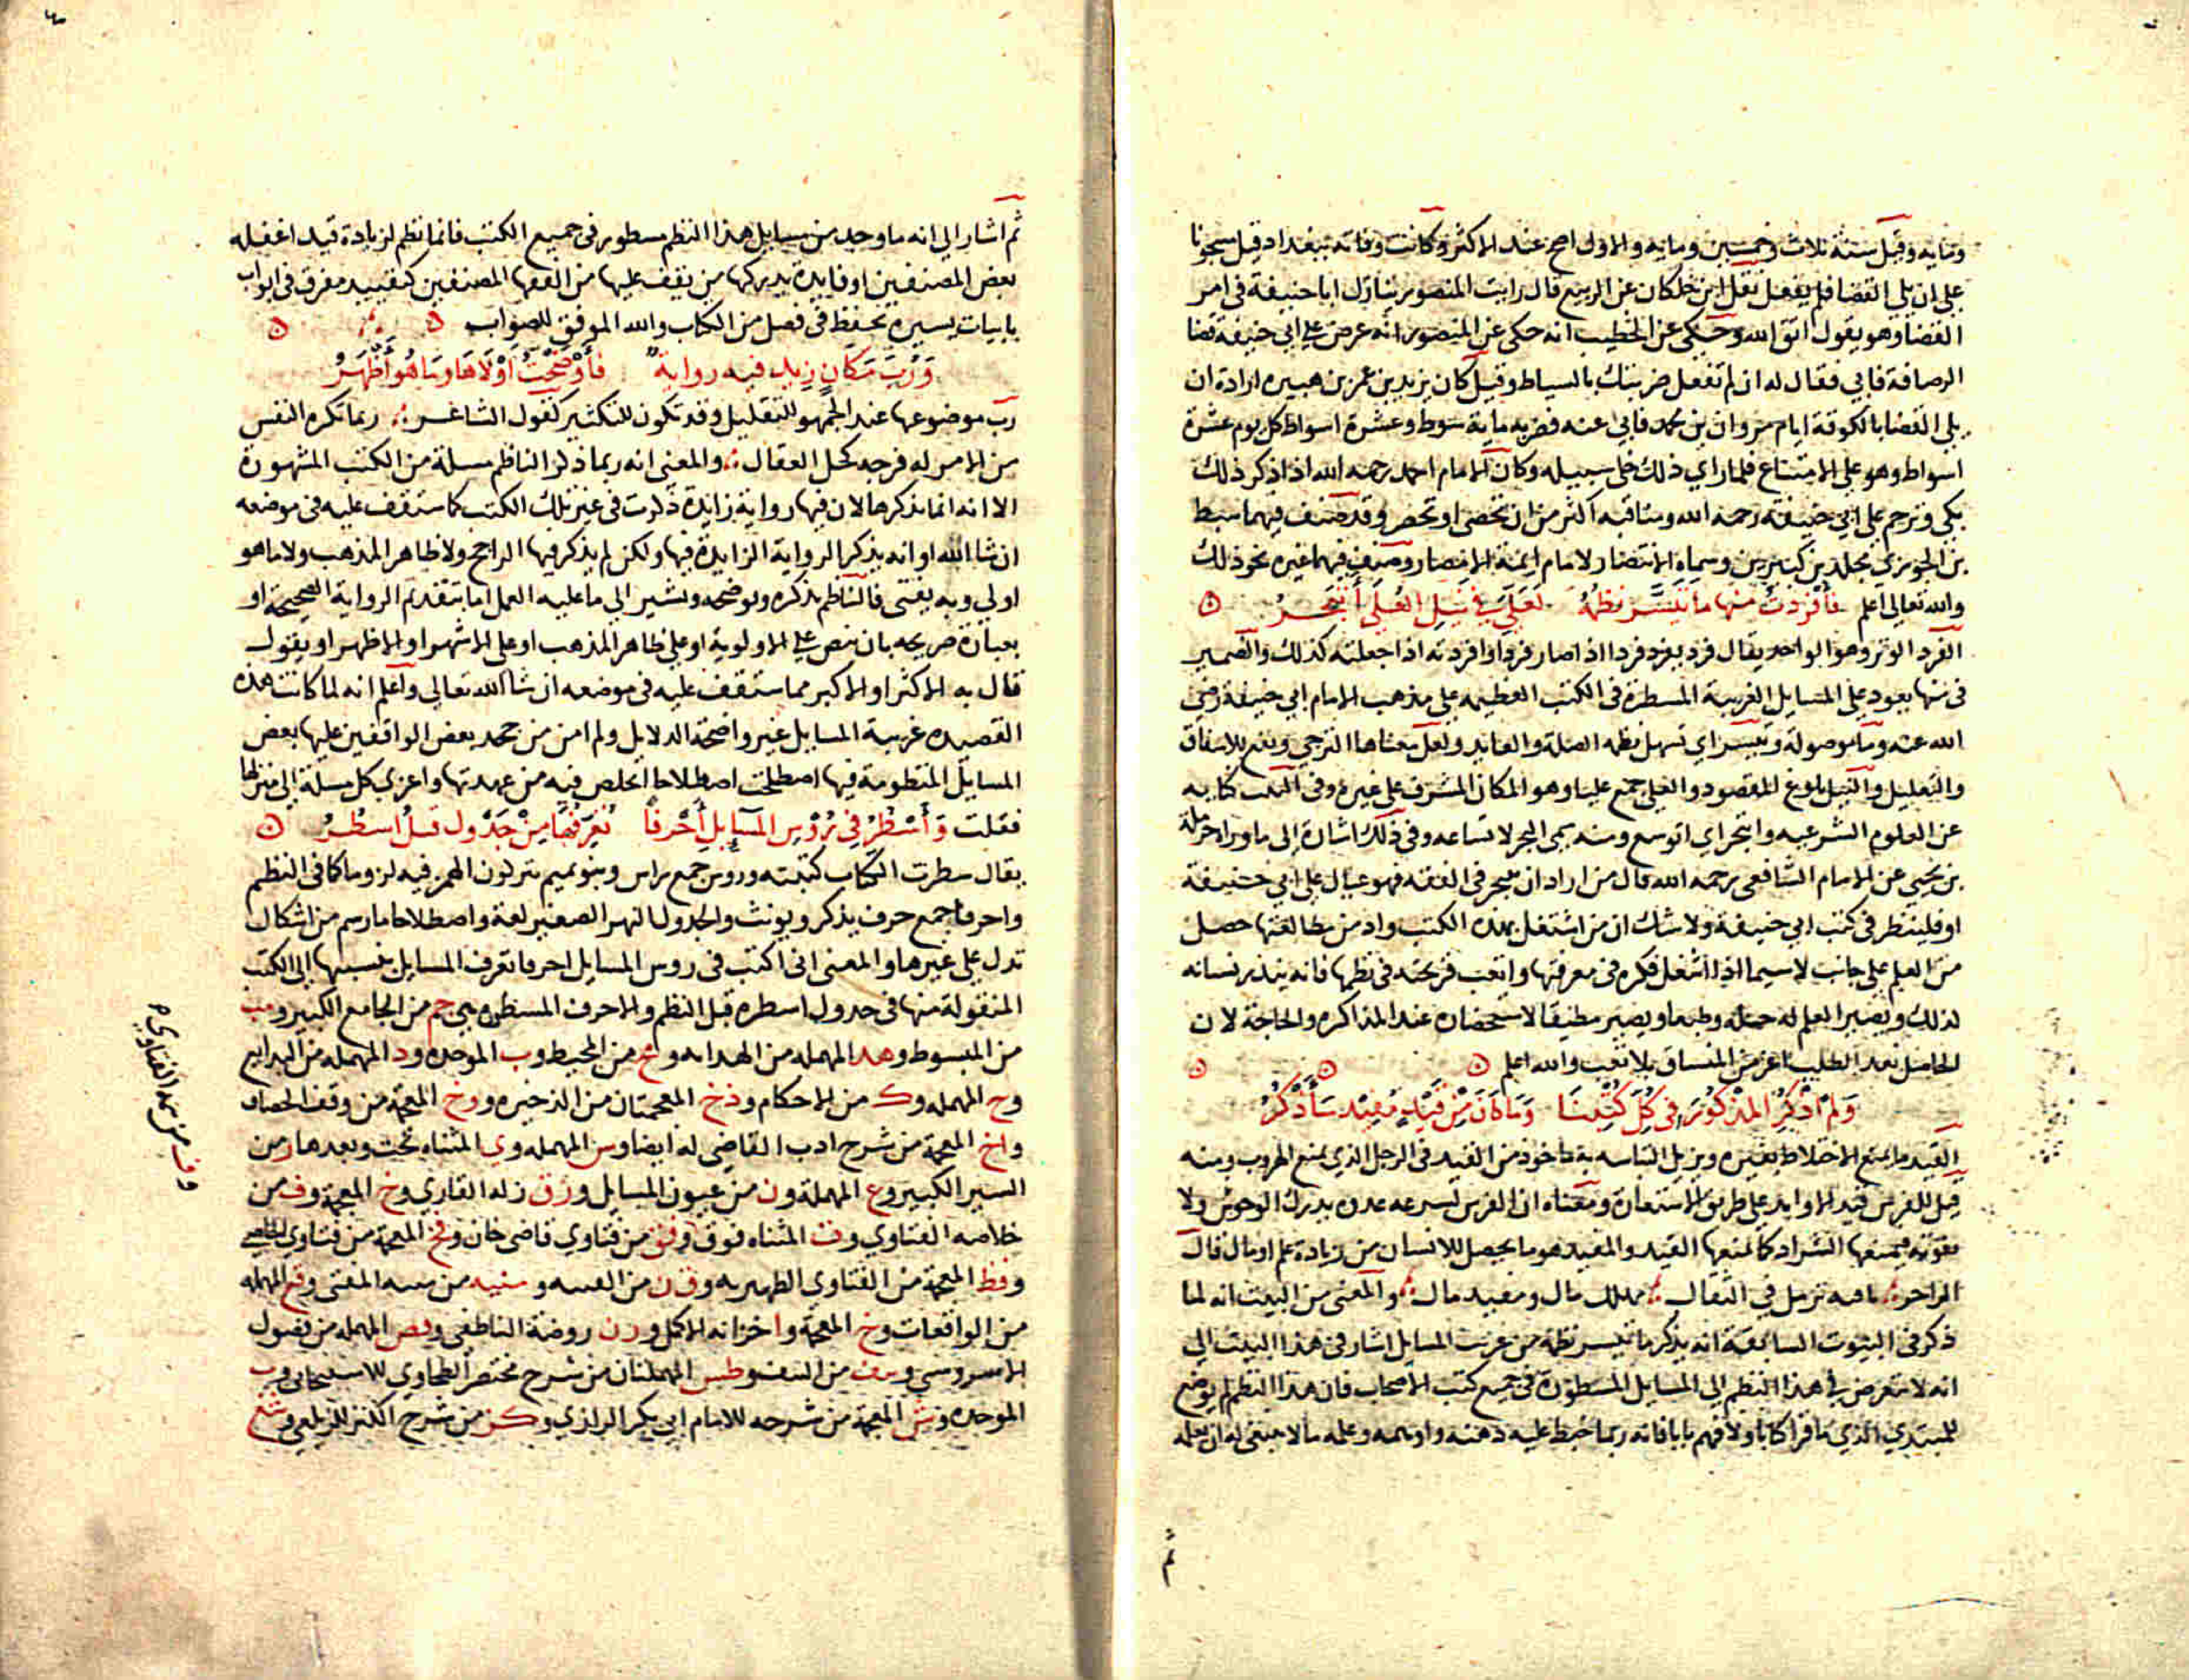 ومايه وقيل سنة ثلاث وخمسين ومايه والاول اصح عند الاكثر وكانت وفاته ببغداد قيل مسجونا
على ان يلي القضا فلم يفعل نقل ابن خلكان عن الربيع قال رايت المنصور ينازل ابا حنيفة في امر
القضا وهو يقول اتق الله وحكى عن الخطيب انه حكى عن المنصور انه عرض على ابي حنيفة قضا
الرصافة فابي فقال له ان لم تفعل ضربتك بالسياط وقيل كان يزيد بن عمر بن هبيره اراده ان
يلي القضا بالكوفة ايام مروان بن محمد فابي عنه فضربه ماية سوط وعشرة اسواط كل يوم عشرة
اسواط وهو على الامتناع فلما راي ذلك خلى سبيله وكان الامام احمد رحمه الله اذا ذكر ذلك
بكى وترحم على ابي حنيفة رحمه الله ومناقبه اكثر من ان تحصى او تحصر وقد صنف فيهما سبط
بن الجوزي مجلدين كبيرين وسماه الانتصار لامام ايمة الامصار وصنف فيهما غيره نحو ذلك
والله تعالى اعلم فأفردت منها ما تيسر نظمه لعلي في نيل العلى أتبحر
الفرد الوتر وهو الواحد يقال فرد يفرد فردا اذا صار فردا وافردته اذا جعلته كذلك والضمير
في منها يعود على المسايل الغريبة المسطرة في الكتب العظيمه على مذهب الامام ابي حنيفة رضي
الله عنه وما موصولة وتيسر اي تسهل نظمه الصلة والعايد ولعل معناها الترجي وتقع للاشفاق
والتعليل والنيل بلوغ المقصود والعلى جمع عليا وهو المكان المشرف على غيره وفي البيت كنايه
عن العلوم الشرعيه واتبحر اي اتوسع ومنه سمي البحر لاتساعه وفي ذلك اشارة الى ما رواه حرملة
بن يحيى عن الامام الشافعي رحمه الله قال من اراد ان يتبحر في الفقه فهو عيال على ابي حنيفة
او فلينظر في كتب ابي حنيفة ولا شك ان من اشتغل بهذه الكتب وادمن مطالعتها حصل
من العلم على جانب لاسيما اذا اشغل فكره في معرفتها واتعب قريحته في نظمها فانه
لذلك ويصير العلم له جملة وطبعا ويصير مطيقا لاستحضاره عند المذاكره والحاجة لان
الحاصل بعد الطلب اعز من المنساق بلا تعب والله اعلم
ولم أذكر المذكور في كل كتبنا وما كان من قيد مفيد سأذكر
القيد ما يمنع الاختلاط بغيره ويزيل التباسه به ماخوذ من القيد في الرجل الذي يمنع الهروب ومنه
قيل للفرس قيد الاوابد على طريق الاستعارة ومعناه ان الفرس لسرعه عدوه يدرك الوحوش ولا
تفوته فيمنعها الشراد كما يمنعها القيد والمفيد هو ما يحصل للانسان من زيادة علم او مال قال
الراجز ناقته ترمل في النقال مهلك مال ومفيد مال والمعنى من البيت انه لما
ذكر في البيوت السابقة انه يذكر ما تيسر نظمه من غريب المسايل اشار في هذا البيت الى
انه لا يتعرض في هذا النظم الى المسايل المسطورة في جميع كتب الاصحاب فان هذا النظم لم يوضع
للمبتدي الذي ما قرا كتابا ولا فهم بابا فانه ربما خبط عليه ذهنه واوهمه وعلمه ما لا ينبغي له ان يعلمه
ثم
ثم اشار الى انه ما وجد من مسايل هذا النظم مسطور في جميع الكتب فانما نظم لزيادة قيد اغفله
بعض المصنفين او فايدة يدركها من يقف عليها من الفقها المصنفين كتقييد مفرق في ابواب
بابيات يسيره تحفظ في فصل من الكتاب والله الموفق للصواب
ورب مكان زيد فيه رواية فأوضحت أولاها وما هو أظهر
رب موضوعها عند الجمهور للتقليل وقد تكون للتكثير كقول الشاعر ربما تكره النفس
من الامر له فرجه كحل العقال والمعنى انه ربما ذكر الناظم مسلة من الكتب المشهورة
الا انه انما يذكرها لان فيها رواية زايدة ذكرت في غير تلك الكتب كما ستقف عليه في موضعه
ان شا الله او انه يذكر الرواية الزايدة فيها ولكن لم يذكر فيها الراجح ولا ظاهر المذهب ولا ما هو
اولى وبه يفتى فالناظم يذكره ويوضحه ويشير الى ما عليه العمل اما بتقديم الرواية الصحيحة او
بعبارة صريحه بان ينص على الاولوية او على ظاهر المذهب او على الاشهر او الاظهر او يقول
قال به الاكثر او الاكبر مما ستقف عليه في موضعه ان شا الله تعالى واعلم انه لما كانت هذه
القصيده غريبة المسايل غير واضحة الدلايل ولم امن من جحد بعض الواقفين عليها بعض
المسايل المنظومة فيها اصطلحت اصطلاحا اتخلص فيه من عهدتها واعزي كل مسلة الى منزلها
فقلت وأسطر في روس المسايل أحرفا تعرفها من جدول قبل اسطر
يقال سطرت الكتاب كتبته وروس جمع راس وبنو تميم يتركون الهمز فيه لزوما كما في النظم
واحرفا جمع حرف يذكر ويونث والجدول النهر الصغير لغة واصطلاحا ما رسم من اشكال
تدل على غيرها والمعنى اني اكتب في روس المسايل احرفا تعرف المسايل بنسبتها الى الكتب
المنقولة منها في جدول اسطره قبل النظم والاحرف المسطره هي جم من الجامع الكبير ومب
من المبسوط وهد المهمله من الهدايه ومح من المحيط وب الموحده ود المهمله من البدايع
وح المهمله وك من الاحكام وذخ المعجمتان من الذخيره ووخ المعجمة من وقف الخصاف
واخ المعجمة من شرح ادب القاضي له ايضا وس المهمله وي المثناه تحت وبعدها ر من
السير الكبير وع المهملة ون من عيون المسايل وزق زلة القاري وخ المعجمة وف من
خلاصه الفتاوي وف المثناه فوق وفق من فتاوي قاضي خان وفخ المعجمة من فتاوي
وفظ المعجمة من الفتاوى الظهيريه وقن من القنيه ومنيه من منيه المفتي وقع المهمله
من الواقعات وخ المعجمة واخزانه الاكمل ورن روضة الناطفي وفص المهمله من فصول
الاسروسي ونتف من النتف وطس المهملتان من شرح مختصر الطحاوي للاسبيجابي وب
الموحده وش المعجمة من شرحه للامام ابي بكر الرازي وكز من شرح الكنز للزيلعي وشع
وف من الفتاوى